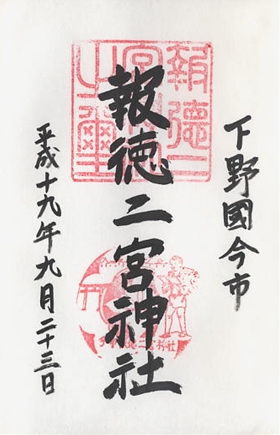 下野國今市
報徳二宮神社
平成十九年九月二十三日
報徳二
宮神社